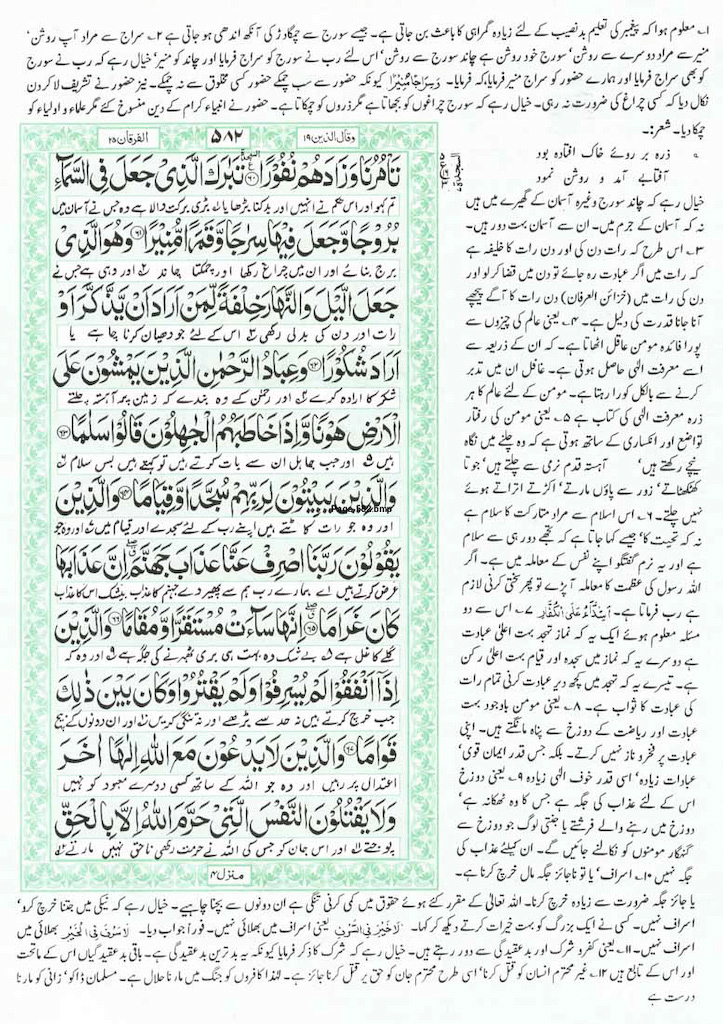 ۱۔ معلوم ہوا کہ پیغمبر کی تعلیم بد نصیب کے لئے زیادہ گمراہی کا باعث بن جاتی ہے۔ جیسے سورج سے چمگادڑ کی آنکھ اندھی ہو جاتی ہے ۲۔ سراج سے مراد آپ روشن'
منیر سے مراد دوسرے سے روشن' سورج خود روشن ہے چاند سورج سے روشن' اس لئے رب نے سورج کو سراج فرمایا اور چاند کو منیر' خیال رہے کہ رب نے سورج
کو بھی سراج فرمایا اور ہمارے حضور کو سراج منیر فرمایا۔ کہ فرمایا۔ وَسِرَاجًا مُّنِیْرًا کیونکہ حضور سے سب چمکے حضور کسی مخلوق سے نہ چمکے۔ نیز حضور نے تشریف لا کر دن
نکال دیا کہ کسی چراغ کی ضرورت نہ رہی۔ خیال رہے کہ سورج چراغوں کو بجھاتا ہے مگر ذروں کو چمکاتا ہے۔ حضور نے انبیاء کرام کے دین منسوخ کئے مگر علماء و اولیاء کو
چمکا دیا۔ شعر:۔
ذرہ بر روئے خاک افتادہ بود
آفتابے آمد و روشن نمود
خیال رہے کہ چاند سورج وغیرہ آسمان کے گھیرے میں ہیں
نہ کہ آسمان کے جرم میں۔ ان سے آسمان بہت دور ہیں۔
۳۔ اس طرح کہ رات دن کی اور دن رات کا خلیفہ ہے
کہ رات میں اگر عبادت رہ جائے تو دن میں قضا کر لو اور
دن کی رات میں (خزائن العرفان) دن رات کا آگے پیچھے
آنا جانا قدرت کی دلیل ہے۔ ۴۔ یعنی عالم کی چیزوں سے
پورا فائدہ مومن عاقل اٹھاتا ہے۔ کہ ان کے ذریعہ سے
اسے معرفت الٰہی حاصل ہوتی ہے۔ غافل ان میں تدبر
کرنے سے بالکل کورا رہتا ہے۔ مومن کے لئے عالم کا ہر
ذرہ معرفت الٰہی کی کتاب ہے ۵۔ یعنی مومن کی رفتار
تواضع اور انکساری کے ساتھ ہوتی ہے کہ وہ چلنے میں نگاہ
نیچے رکھتے ہیں' آہستہ قدم نرمی سے چلتے ہیں' جوتا
کھٹکھٹاتے' زور سے پاؤں مارتے' اکڑتے اتراتے ہوئے
نہیں چلتے۔ ۶۔ اس سلام سے مراد متارکت کا سلام ہے
نہ کہ تحیت کا' جیسے کہا جاتا ہے کہ تجھے دور ہی سے سلام
ہے اور یہ نرم گفتگو اپنے نفس کے معاملہ میں ہے۔ اگر
اللہ رسول کی عظمت کا معاملہ آ پڑے تو پھر سختی کرنی لازم
ہے رب فرماتا ہے۔ اَشِدَّآءُ عَلَی الْکُفَّارِ ۷۔ اس سے دو
مسئلہ معلوم ہوئے ایک یہ کہ نماز تہجد بہت اعلیٰ عبادت
ہے دوسرے یہ کہ نماز میں سجدہ اور قیام بہت اعلیٰ رکن
ہے۔ تیسرے یہ کہ تہجد میں کچھ دیر عبادت کرنی تمام رات
کی عبادت کا ثواب ہے۔ ۸۔ یعنی مومن باوجود بہت
عبادت اور ریاضت کے دوزخ سے پناہ مانگتے ہیں۔ اپنی
عبادت پر فخر و ناز نہیں کرتے۔ بلکہ جس قدر ایمان قوی'
عبادات زیادہ' اسی قدر خوف الٰہی زیادہ ۹۔ یعنی دوزخ
اس کے لئے عذاب کی جگہ ہے جس کا وہ ٹھکانہ ہے'
دوزخ میں رہنے والے فرشتے یا جنتی لوگ جو دوزخ سے
گنہگار مومنوں کو نکالنے جائیں گے۔ ان کیلئے عذاب کی
جگہ نہیں ۱۰۔ اسراف' یا تو ناجائز جگہ مال خرچ کرنا ہے۔
وقال الذین ۱۹ ۵۸۲ الفرقان ۲۵
تَاْمُرُنَا وَزَادَهُمْ نُفُوْرًا ۩ تَبٰرَكَ الَّذِیْ جَعَلَ فِی السَّمَآءِ
تم کہو اور اس حکم نے انہیں اور بدکنا بڑھایا ۱ بڑی برکت والا ہے وہ جس نے آسمان میں
بُرُوْجًا وَّجَعَلَ فِیْهَا سِرٰجًا وَّقَمَرًا مُّنِیْرًا ۝ وَهُوَ الَّذِیْ
برج بنائے اور ان میں چراغ رکھا اور چمکتا چاند ۲ اور وہی ہے جس نے
جَعَلَ الَّیْلَ وَالنَّهَارَ خِلْفَةً لِّمَنْ اَرَادَ اَنْ یَّذَّكَّرَ اَوْ
رات اور دن کی بدلی رکھی ۳ اس کے لئے جو دھیان کرنا چاہے یا
اَرَادَ شُكُوْرًا ۝ وَعِبَادُ الرَّحْمٰنِ الَّذِیْنَ یَمْشُوْنَ عَلَی
شکر کا ارادہ کرے ۴ اور رحمٰن کے وہ بندے کہ زمین پر آہستہ چلتے
الْاَرْضِ هَوْنًا وَّاِذَا خَاطَبَهُمُ الْجٰهِلُوْنَ قَالُوْا سَلٰمًا ۝
ہیں ۵ اور جب جاہل ان سے بات کرتے ہیں تو کہتے ہیں بس سلام ۶
وَالَّذِیْنَ یَبِیْتُوْنَ لِرَبِّهِمْ سُجَّدًا وَّقِیَامًا ۝ وَالَّذِیْنَ
اور وہ جو رات کاٹتے ہیں اپنے رب کے لئے سجدے اور قیام میں ۷ اور وہ جو
یَقُوْلُوْنَ رَبَّنَا اصْرِفْ عَنَّا عَذَابَ جَهَنَّمَ ۖ اِنَّ عَذَابَهَا
عرض کرتے ہیں اے ہمارے رب ہم سے پھیر دے جہنم کا عذاب بیشک اس کا عذاب
كَانَ غَرَامًا ۝ اِنَّهَا سَآءَتْ مُسْتَقَرًّا وَّمُقَامًا ۝ وَالَّذِیْنَ
گلے کا غل ہے ۸ بے شک وہ بہت ہی بری ٹھہرنے کی جگہ ہے ۹ اور وہ کہ
اِذَآ اَنْفَقُوْا لَمْ یُسْرِفُوْا وَلَمْ یَقْتُرُوْا وَكَانَ بَیْنَ ذٰلِكَ
جب خرچ کرتے ہیں نہ حد سے بڑھیں اور نہ تنگی کریں ۱۰ اور ان دونوں کے بیچ
قَوَامًا ۝ وَالَّذِیْنَ لَا یَدْعُوْنَ مَعَ اللّٰهِ اِلٰهًا اٰخَرَ
اعتدال پر رہیں اور وہ جو اللہ کے ساتھ کسی دوسرے معبود کو نہیں
وَلَا یَقْتُلُوْنَ النَّفْسَ الَّتِیْ حَرَّمَ اللّٰهُ اِلَّا بِالْحَقِّ
پوجتے ۱۱ اور اس جان کو جس کی اللہ نے حرمت رکھی ناحق نہیں مارتے ۱۲
منزل ۴
Page 582.bmp
یا جائز جگہ ضرورت سے زیادہ خرچ کرنا۔ اللہ تعالیٰ کے مقرر کئے ہوئے حقوق میں کمی کرنی تنگی ہے ان دونوں سے بچنا چاہیے۔ خیال رہے کہ نیکی میں جتنا خرچ کرو'
اسراف نہیں۔ کسی نے ایک بزرگ کو بہت خیرات کرتے دیکھ کر کہا۔ لَاخَیْرَ فِی السَّرْفِ یعنی اسراف میں بھلائی نہیں۔ فوراً جواب دیا۔ لَاسَرْفَ فِی الْخَیْرِ بھلائی میں
اسراف نہیں۔ ۱۱۔ یعنی کفر و شرک اور بد عقیدگی سے دور رہتے ہیں۔ خیال رہے کہ شرک کا ذکر فرمایا کیونکہ یہ بدترین بد عقیدگی ہے۔ باقی بد عقیدگیاں اس کے ماتحت
اور اس کے تابع ہیں ۱۲۔ غیر محترم انسان کو قتل کرنا' اسی طرح محترم جان کو حق پر قتل کرنا جائز ہے۔ لہٰذا کافروں کو جنگ میں مارنا حلال ہے۔ مسلمان ڈاکو' زانی کو مارنا
درست ہے